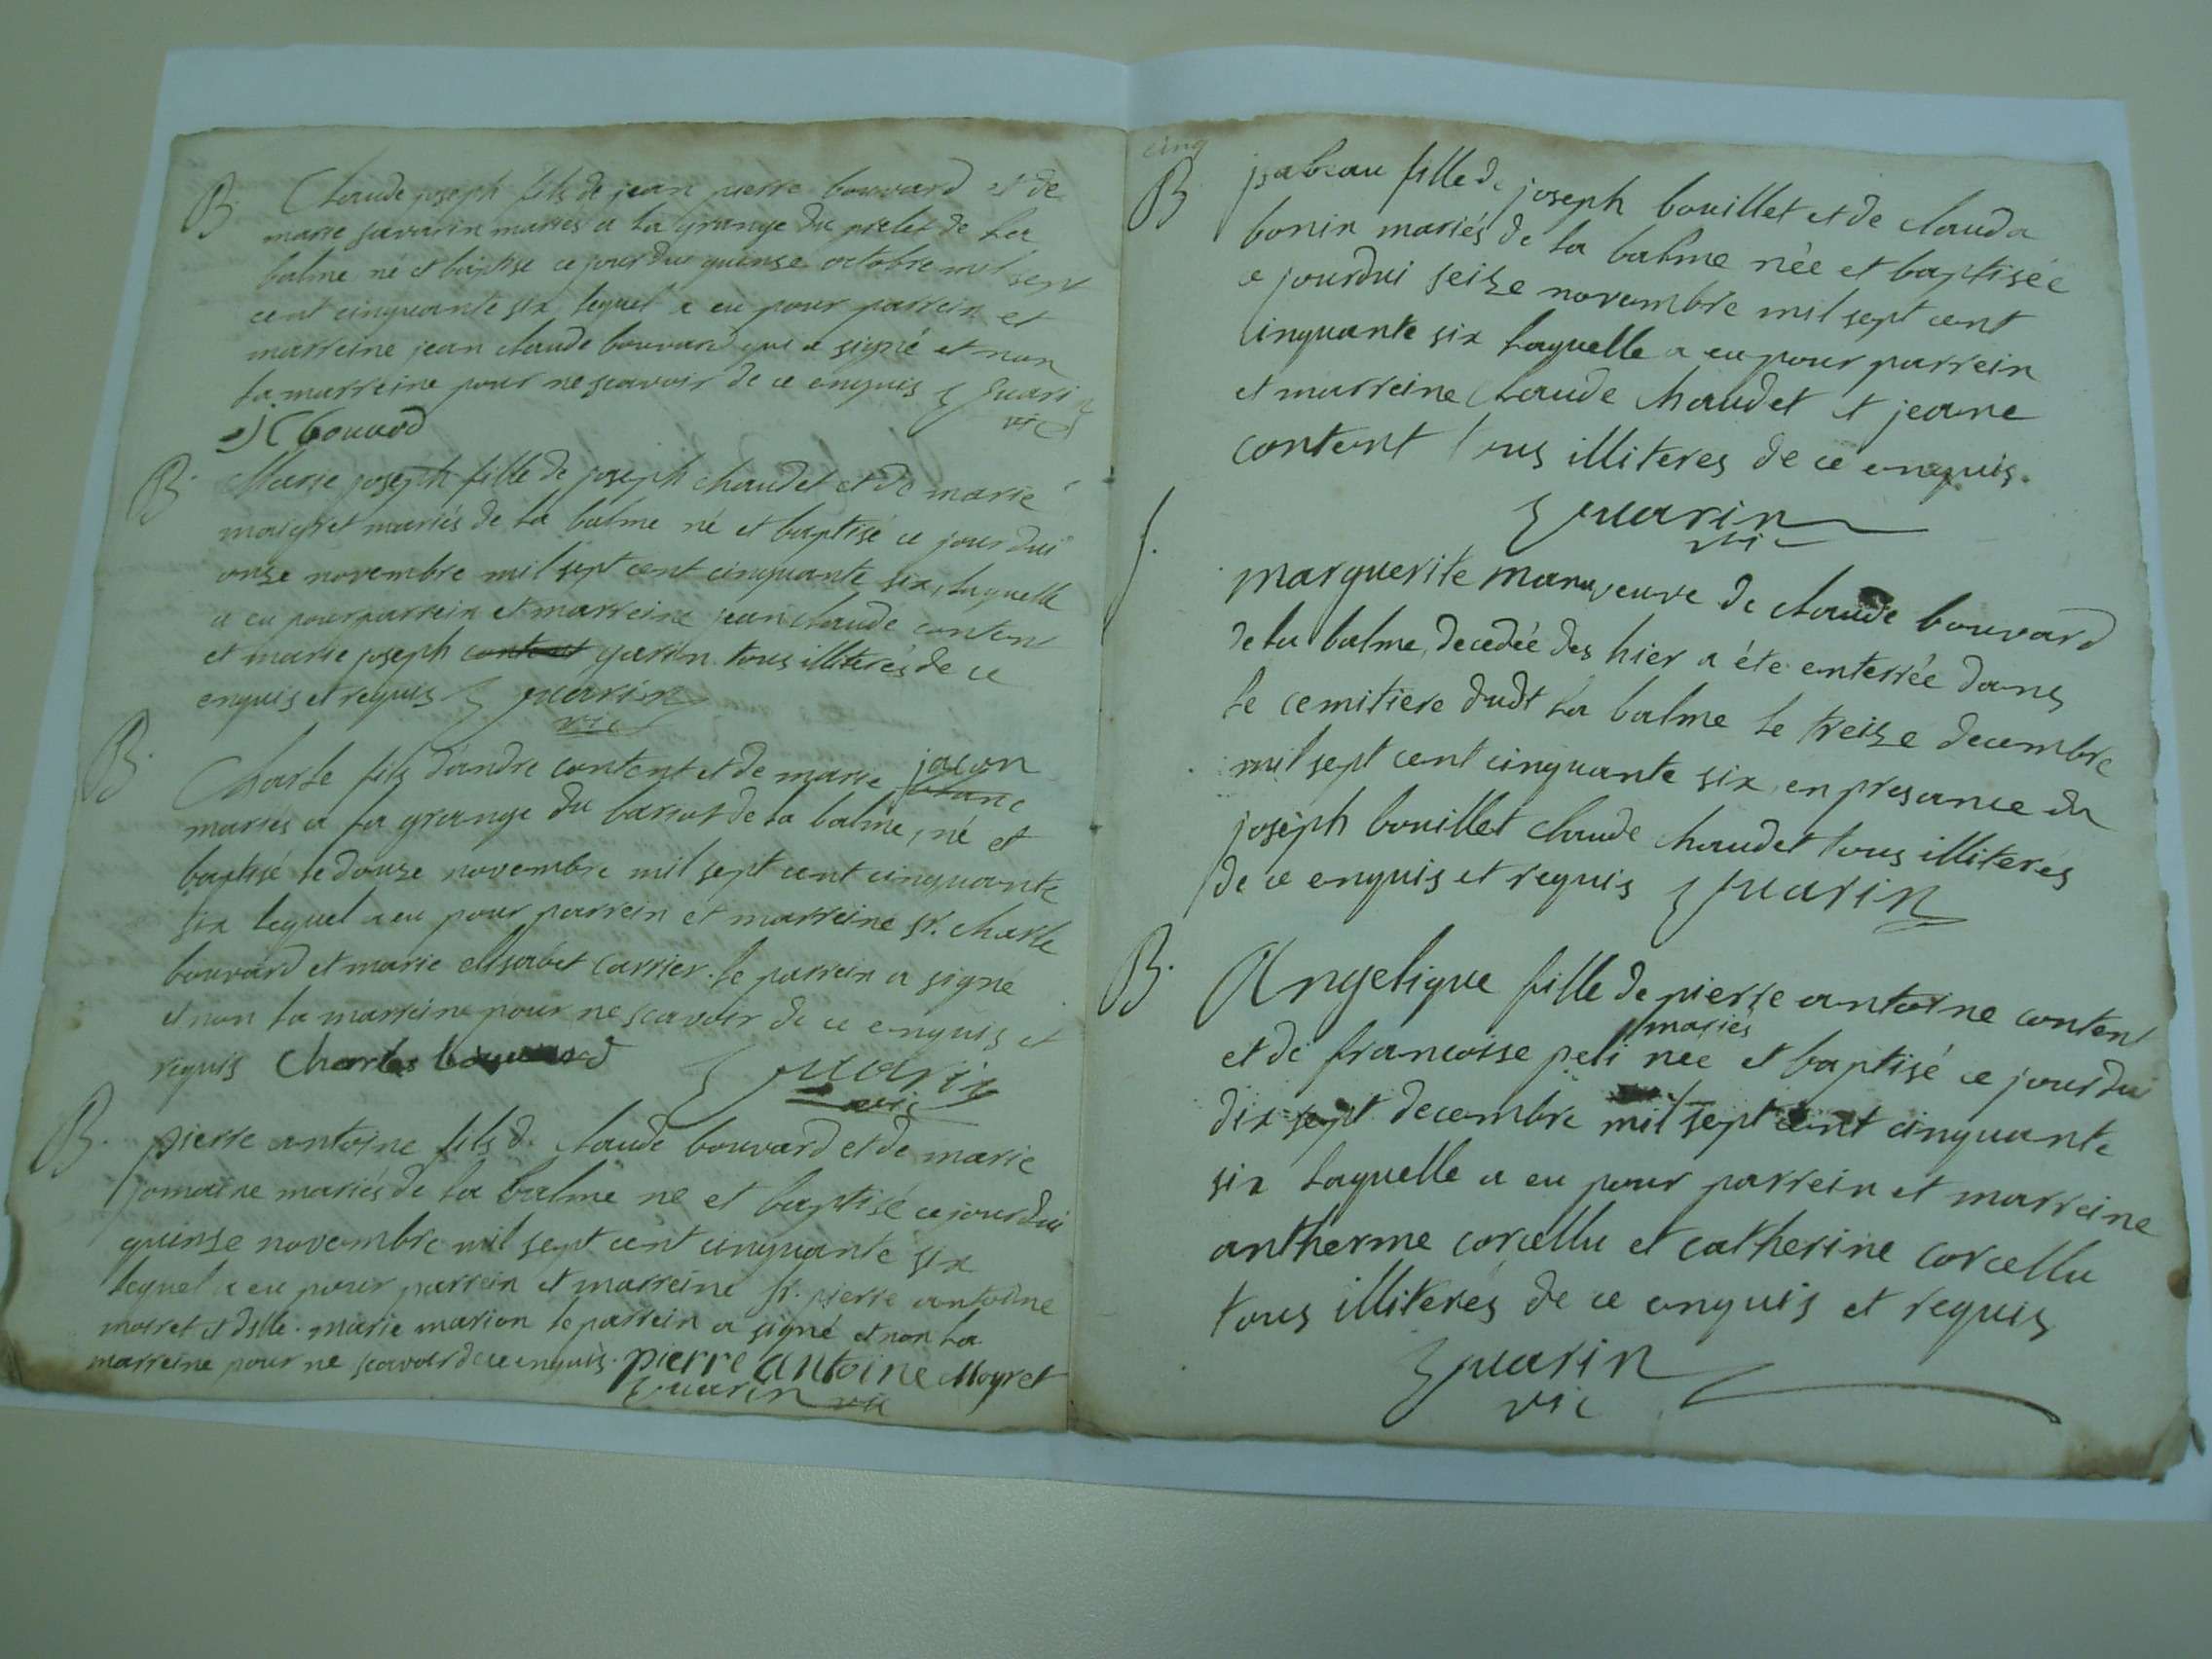 B. Claude joseph fils de jean pierre bouvard et de
marie savarin mariés a la grange du prelet de la
balme né et baptisé ce jourdui quinse octobre mil sept
cent cinquante six lequel a eu pour parrein et
marreine jean claude bouvard qui a signé et non
la marreine pour ne scavoir de ce enquis Guarin
vic
j C bouvard
B. Marie joseph fille de joseph chaudet et de marie
maigret mariés de la balme né et baptisé ce jourdui
onze novembre mil sept cent cinquante six, laquelle
a eu pour parrein et marreine jean claude content
et marie joseph content guarin tous illiterés de ce
enquis et requis Guarin
vic
B. Charle fils d'andre content et de marie jacon
blanc
mariés a la grange du barrat de la balme, né et
baptisé le douze novembre mil sept cent cinquante
six lequel a eu pour parrein et marreine sr. charle
bouvard et marie elisabet carrier. le parrein a signé
et non la marreine pour ne scavoir de ce enquis et
requis Charles bouvard Guarin
vic
B. pierre antoine fils de claude bouvard et de marie
jomaine mariés de la balme ne et baptisé ce jourdui
quinse novembre mil sept cent cinquante six
lequel a eu pour parrein et marreine sr. pierre antoine
moiret et dslle. marie marion le parrein a signé et non la
marreine pour ne scavoir de ce enquis. pierre antoine Moyret
Guarin vic
cinq
B jsabeau fille de joseph bouillet et de clauda
bonin mariés de la balme née et baptisée
ce jourdui seize novembre mil sept cent
cinquante six laquelle a eu pour parrein
et marreine Claude chaudet et jeane
content tous illiteres de ce enquis.
Guarin
vic
s. marguerite veuve de claude bouvard
de la balme, decedée des hier a éte enterrée dans
le cemitiere dudt la balme le treize decembre
mil sept cent cinquante six, en presance du
joseph bouillet claude chaudet tous illiterés
de ce enquis et requis Guarin
B. Angelique fille de pierre antoine content
mariés
et de francoise peli née et baptisé ce jourdui
dix sept decembre mil sept cent cinquante
six laquelle a eu pour parrein et marreine
antherme corcellu et catherine corcellu
tous illiterés de ce enquis et requis
Guarin
vic